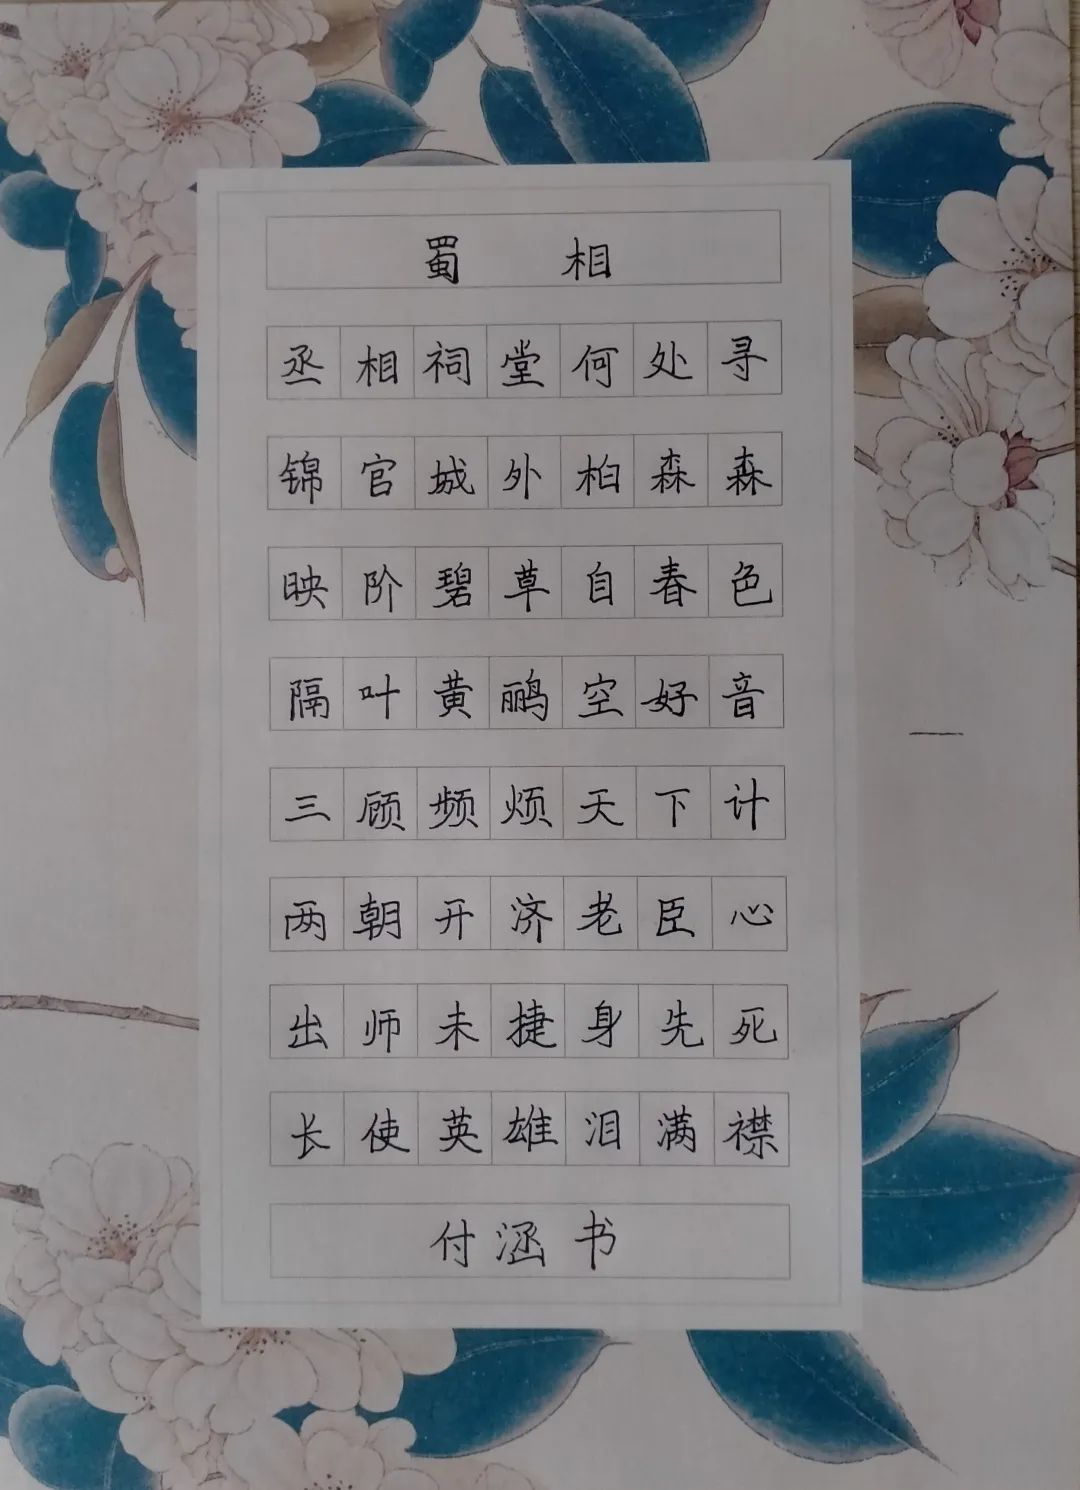 蜀相
丞相祠堂何处寻
锦官城外柏森森
映阶碧草自春色
隔叶黄鹂空好音
三顾频烦天下计
两朝开济老臣心
出师未捷身先死
长使英雄泪满襟
付涵书